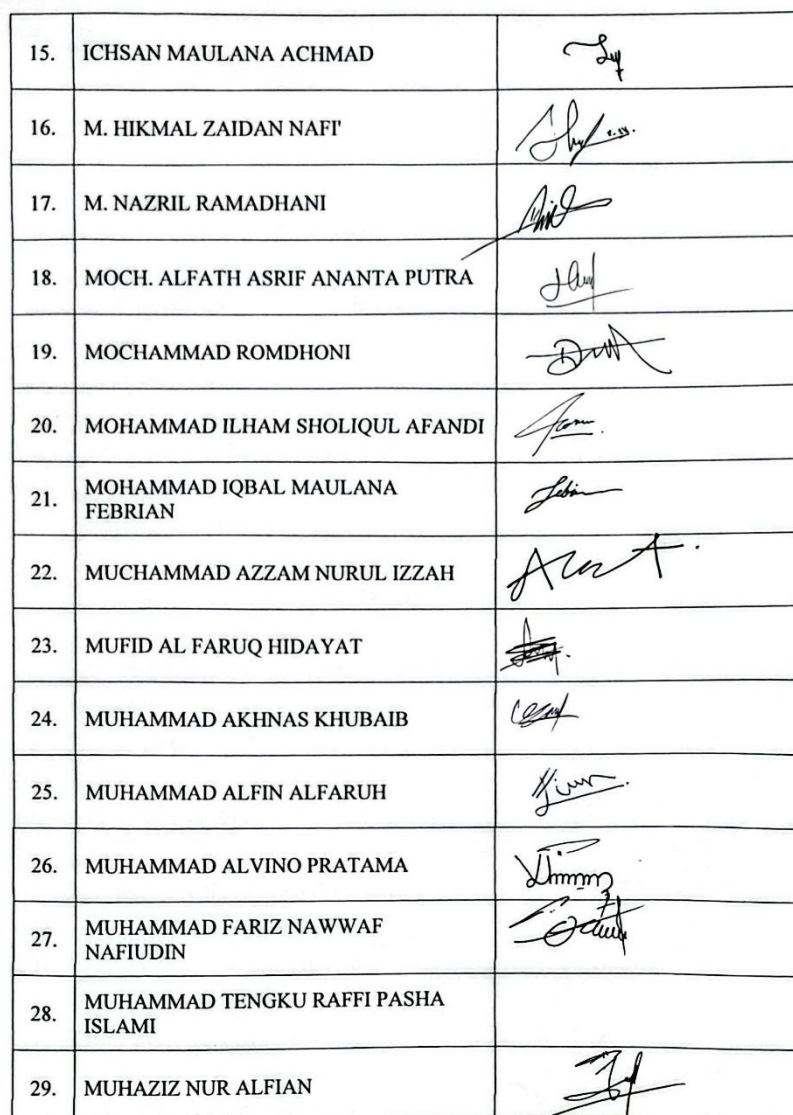 15. ICHSAN MAULANA ACHMAD
16. M. HIKMAL ZAIDAN NAFI'
17. M. NAZRIL RAMADHANI
18. MOCH. ALFATH ASRIF ANANTA PUTRA
19. MOCHAMMAD ROMDHONI
20. MOHAMMAD ILHAM SHOLIQUL AFANDI
21. MOHAMMAD IQBAL MAULANA
FEBRIAN
22. MUCHAMMAD AZZAM NURUL IZZAH
23. MUFID AL FARUQ HIDAYAT
24. MUHAMMAD AKHNAS KHUBAIB
25. MUHAMMAD ALFIN ALFARUH
26. MUHAMMAD ALVINO PRATAMA
27. MUHAMMAD FARIZ NAWWAF
NAFIUDIN
28. MUHAMMAD TENGKU RAFFI PASHA
ISLAMI
29. MUHAZIZ NUR ALFIAN